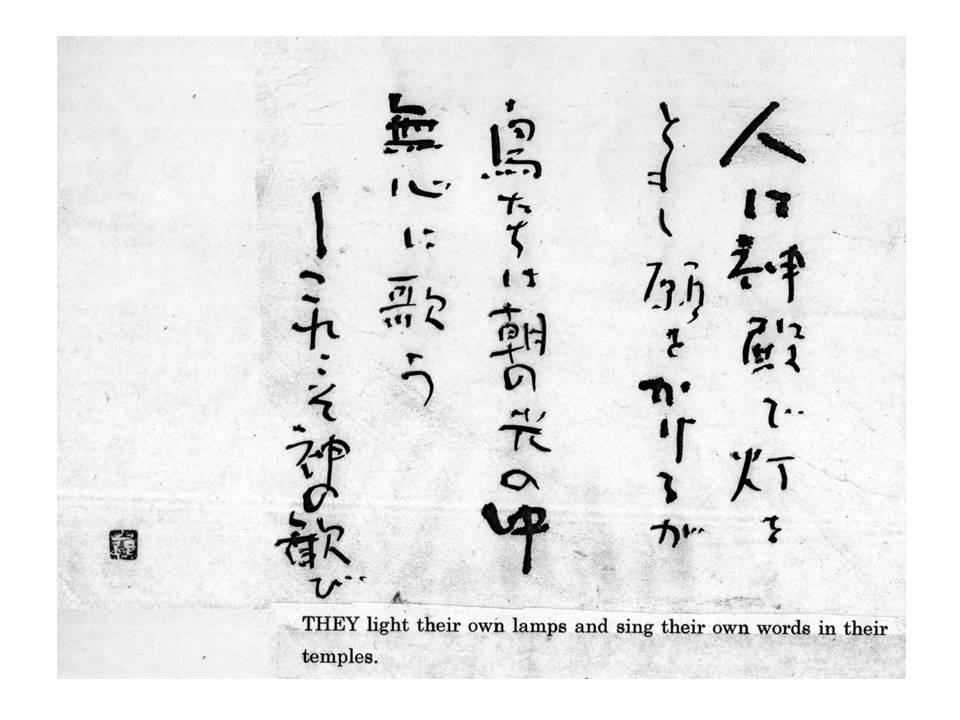 人は神殿で灯を
ともし願をかけるが
鳥たちは朝の光の中
無心に歌う
ーこれこそ神の歓び
THEY light their own lamps and sing their own words in their
temples.